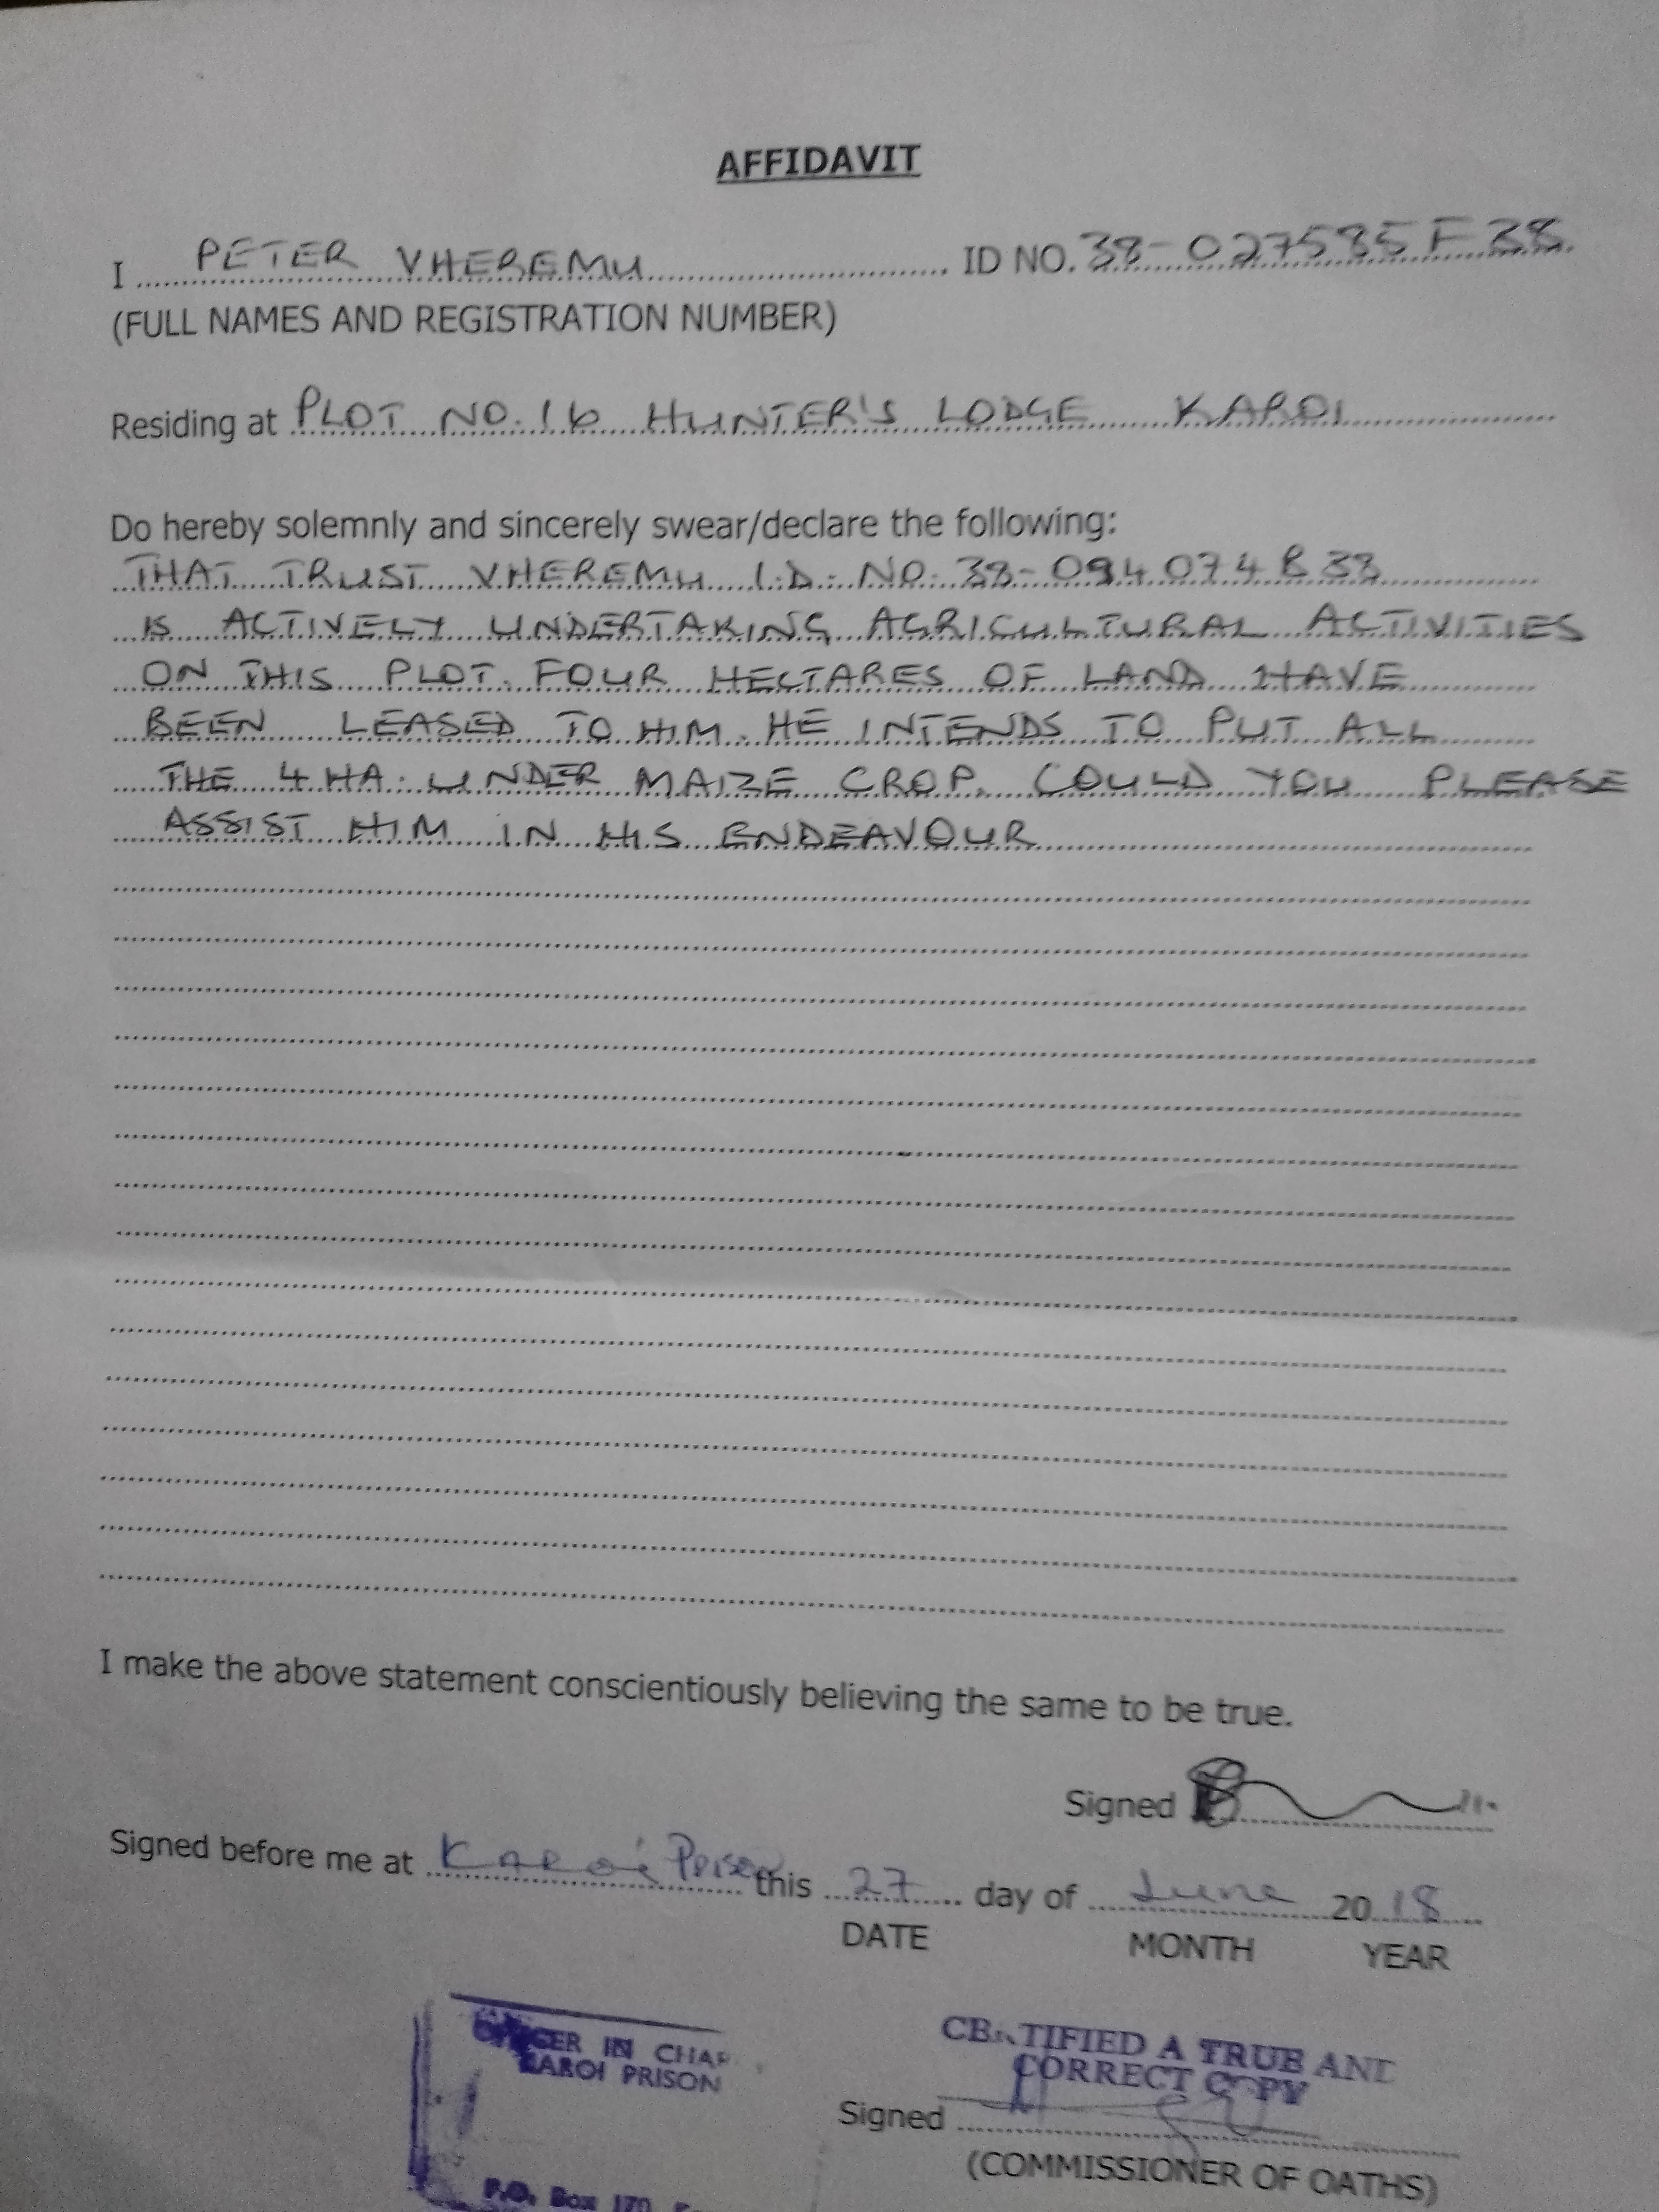 AFFIDAVIT
I PETER VHEREMU ID NO. 38-027585 F 38
(FULL NAMES AND REGISTRATION NUMBER)
Residing at PLOT NO. 16 HUNTER'S LODGE KAROI
Do hereby solemnly and sincerely swear/declare the following:
THAT TRUST VHEREMU I.D. NO. 38-094074 B 38
IS ACTIVELY UNDERTAKING AGRICULTURAL ACTIVITIES
ON THIS PLOT. FOUR HECTARES OF LAND HAVE
BEEN LEASED TO HIM. HE INTENDS TO PUT ALL
THE 4 HA. UNDER MAIZE CROP. COULD YOU PLEASE
ASSIST HIM IN HIS ENDEAVOUR
I make the above statement conscientiously believing the same to be true.
Signed
Signed before me at Karoi Prison this 27 day of June 2018
DATE MONTH YEAR
OFFICER IN CHAR
KAROI PRISON
P.O. Box 170
CERTIFIED A TRUE AND
CORRECT COPY
Signed
(COMMISSIONER OF OATHS)